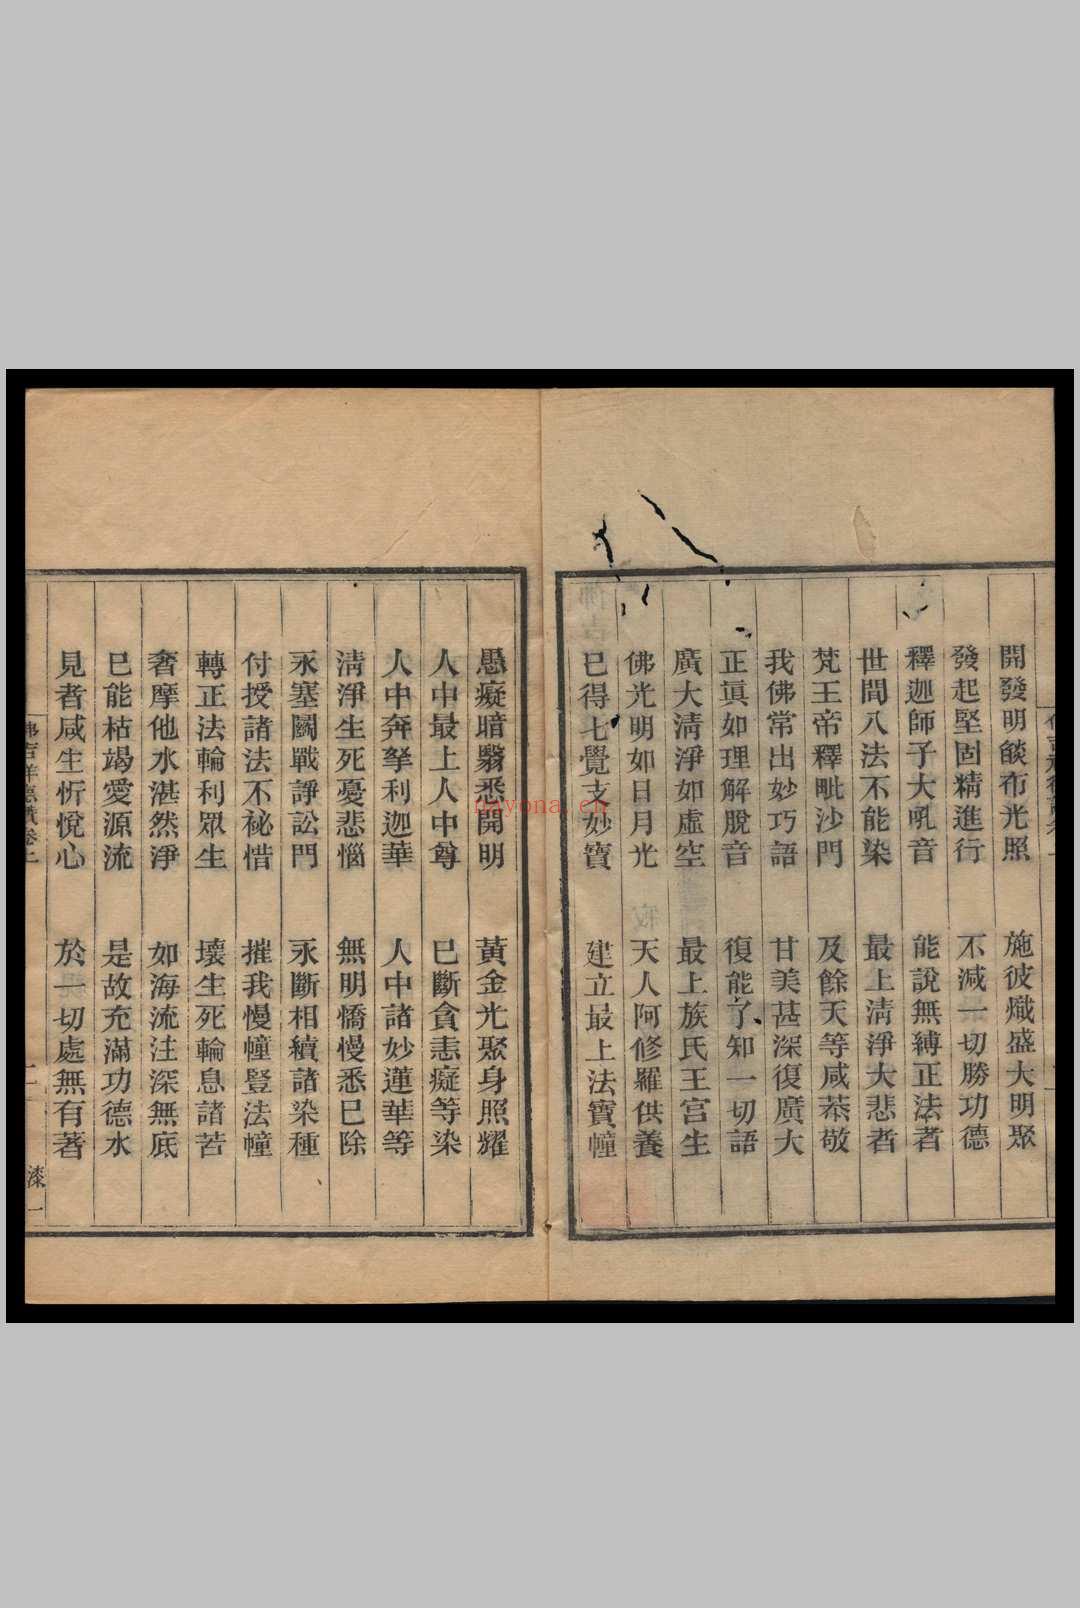 開發明燄布光照 施彼熾盛大明聚
發起堅固精進行 不減一切勝功德
釋迦師子大吼音 能說無縛正法者
世間八法不能染 最上淸淨大悲者
梵王帝釋毗沙門 及餘天等咸恭敬
我佛常出妙巧語 甘美甚深復廣大
正眞如理解脫音 復能了知一切語
廣大淸淨如虛空 最上族氏王宮生
佛光明如日月光 天人阿修羅供養
已得七覺支妙寶 建立最上法寶幢
愚癡暗翳悉開明 黃金光聚身照耀
人中最上人中尊 已斷貪恚癡等染
人中奔拏利迦華 人中諸妙蓮華等
淸淨生死憂悲惱 無明憍慢悉已除
永塞鬬戰諍訟門 永斷相續諸染種
付授諸法不祕惜 摧我慢幢豎法幢
轉正法輪利眾生 壞生死輪息諸苦
奢摩他水湛然淨 如海流注深無底
已能枯竭愛源流 是故充滿功德水
見者咸生忻悅心 於一切處無有著
佛吉祥德讚卷上 二 漆一
nayona.cn